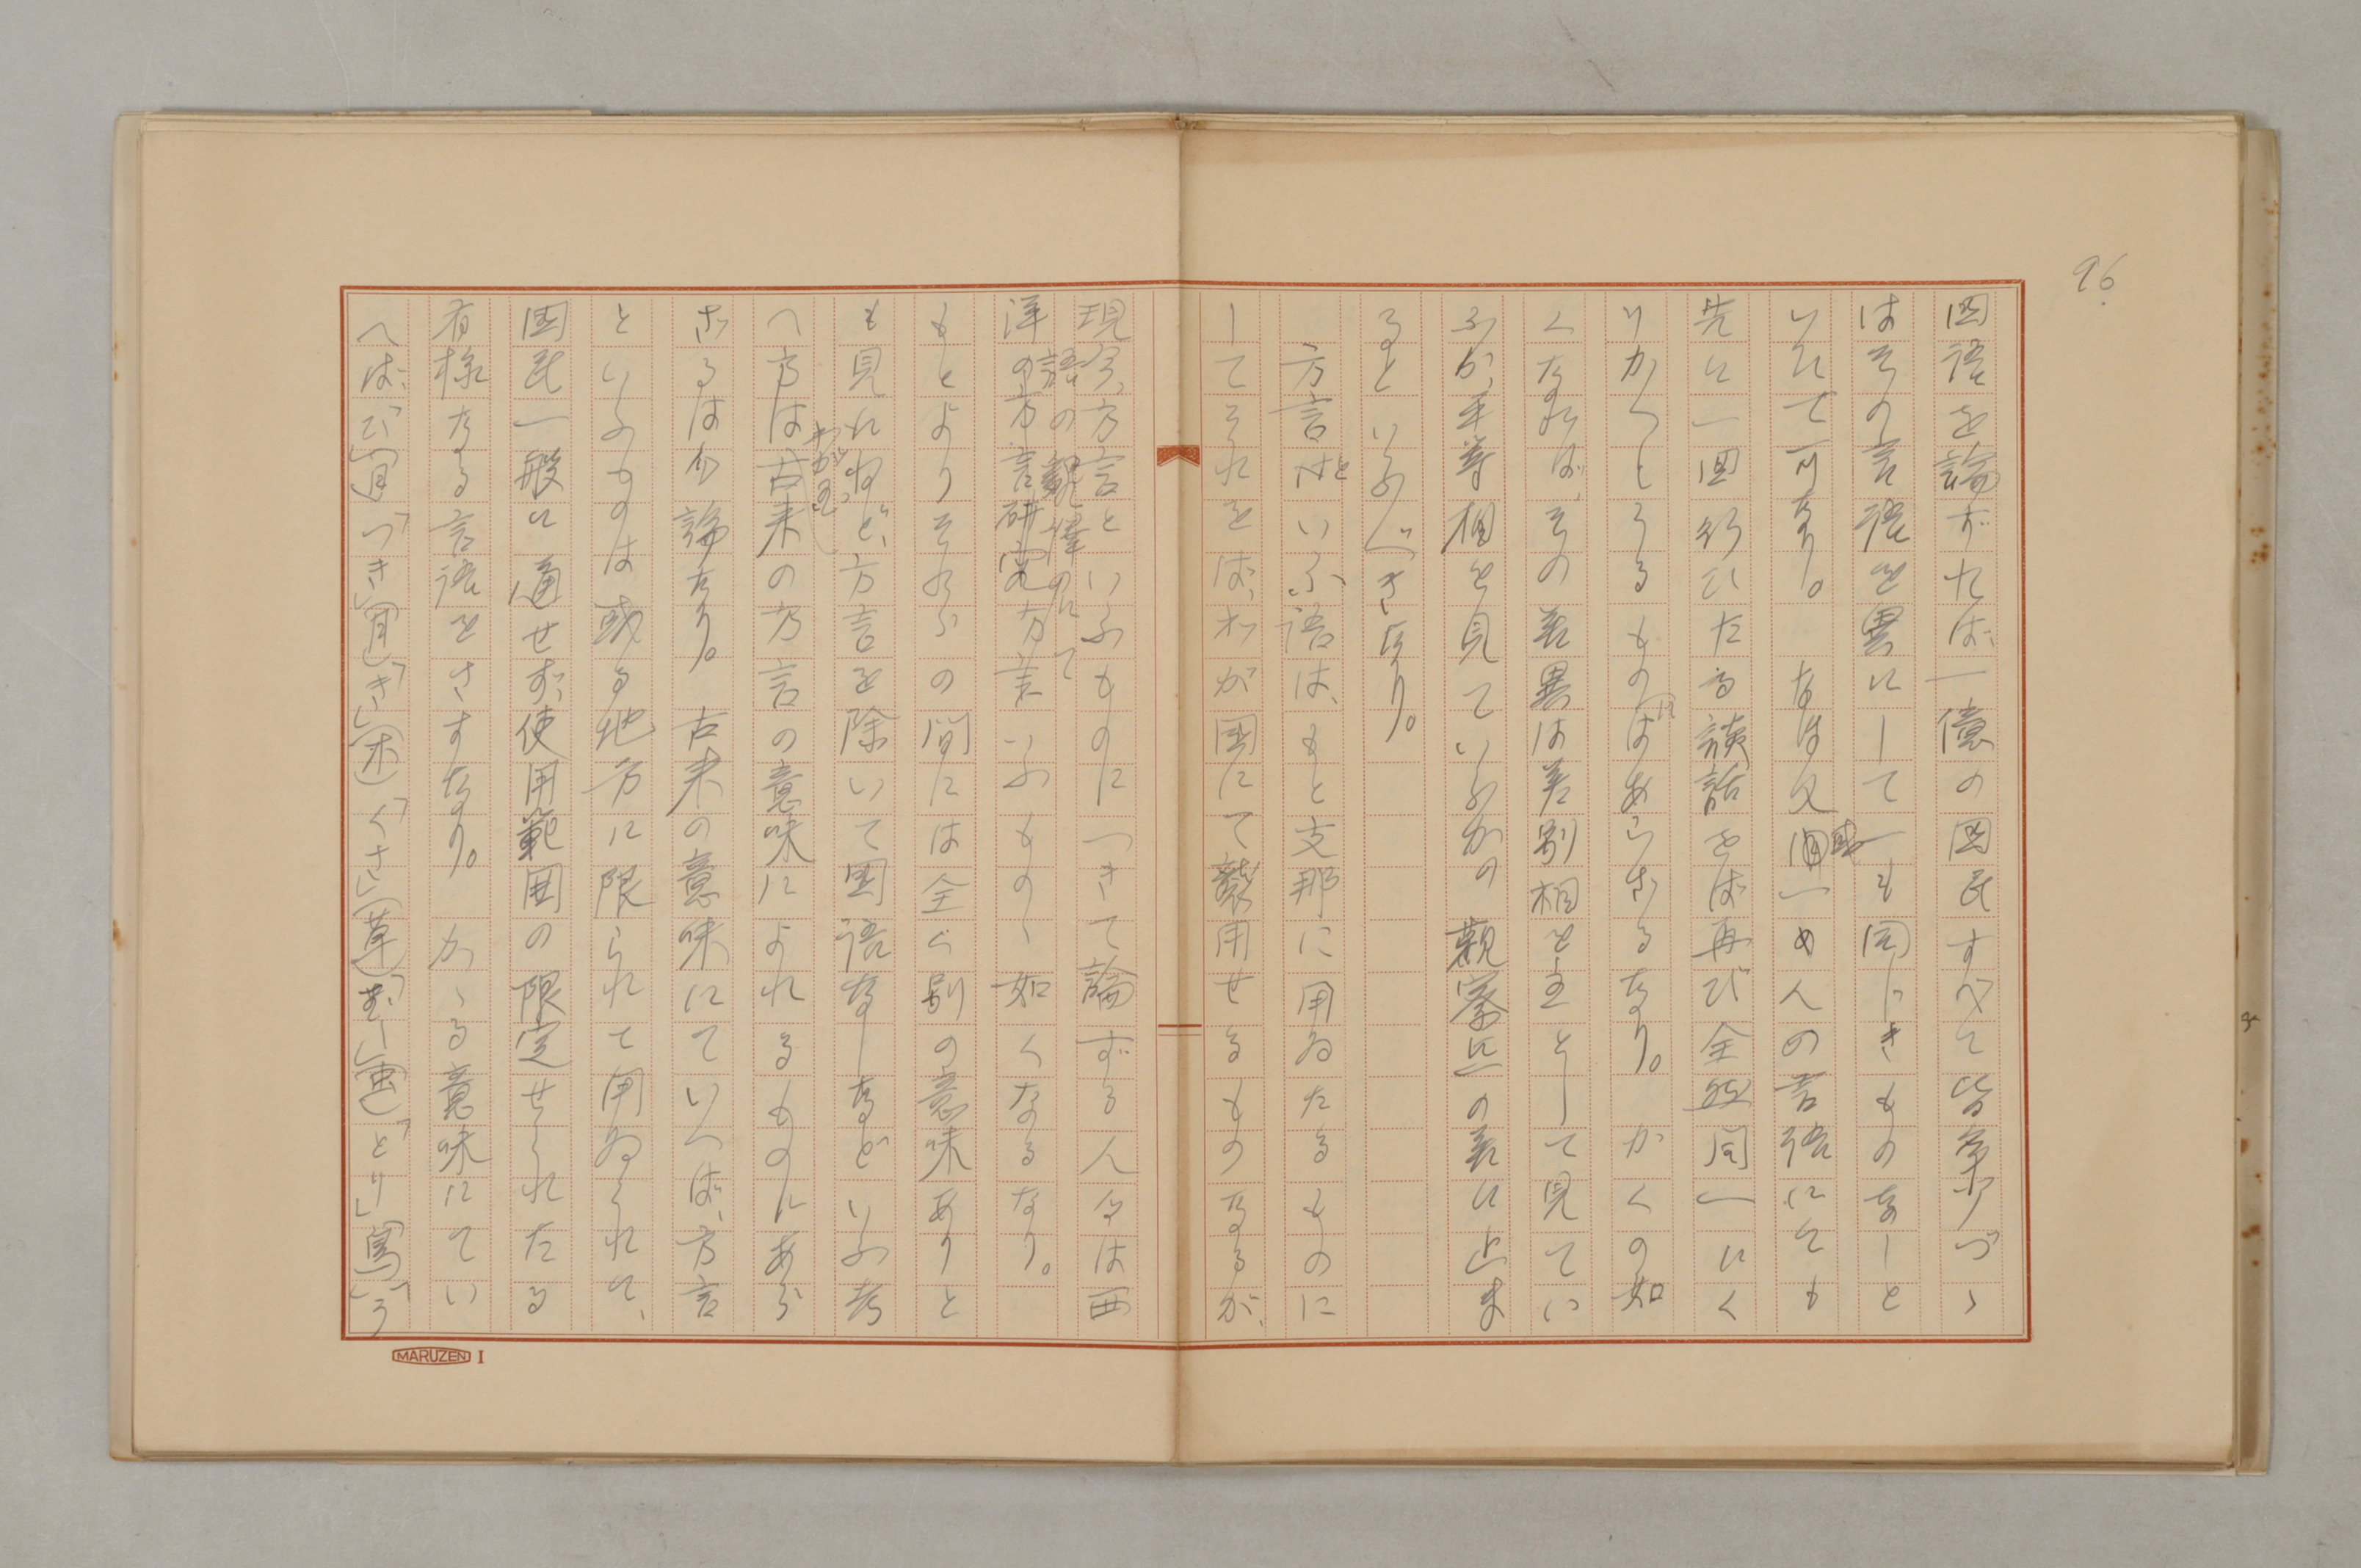 96.
国語を論ずれば、一億の国民すべて皆筆少づゝ
はその言語を異にして一も同じきものなしと
いひて可なり。なほ又同一の人の言語にても
先に一回行ひたる談話をば再び全然同一にく
りかへしうるものにはあらざるなり。かくの如
くなれば、その差異は差別相を主として見てい
ふか、平等相を見ていふかの観察点の差に止ま
るといふべきなり。
方言といふ語は、もと支那に用ゐたるものに
してそれをば、わが国にて襲用せるものなるが、
現今、方言といふものにつきて論ずる人々は西
洋語の観念にていふものゝ如くなるなり。
もとよりそれらの間には全く別の意味ありと
も見れねど、方言を除いて国語なしなどいふ考
へ方はわが国古来の方言の意味によれるものにあら
ざるは勿論なり。古来の意味にていへば、方言
といふものは或る地方に限られて用ゐられて、
国民一般に通せず、使用範囲の限定せられたる
有様なる言語をさすなり。かゝる意味にてい
へば、「ひ」(日)「つき」(月)「き」(木)「くさ」(草)「むし」(虫)「とり」(鳥)「う
MARUZEN I